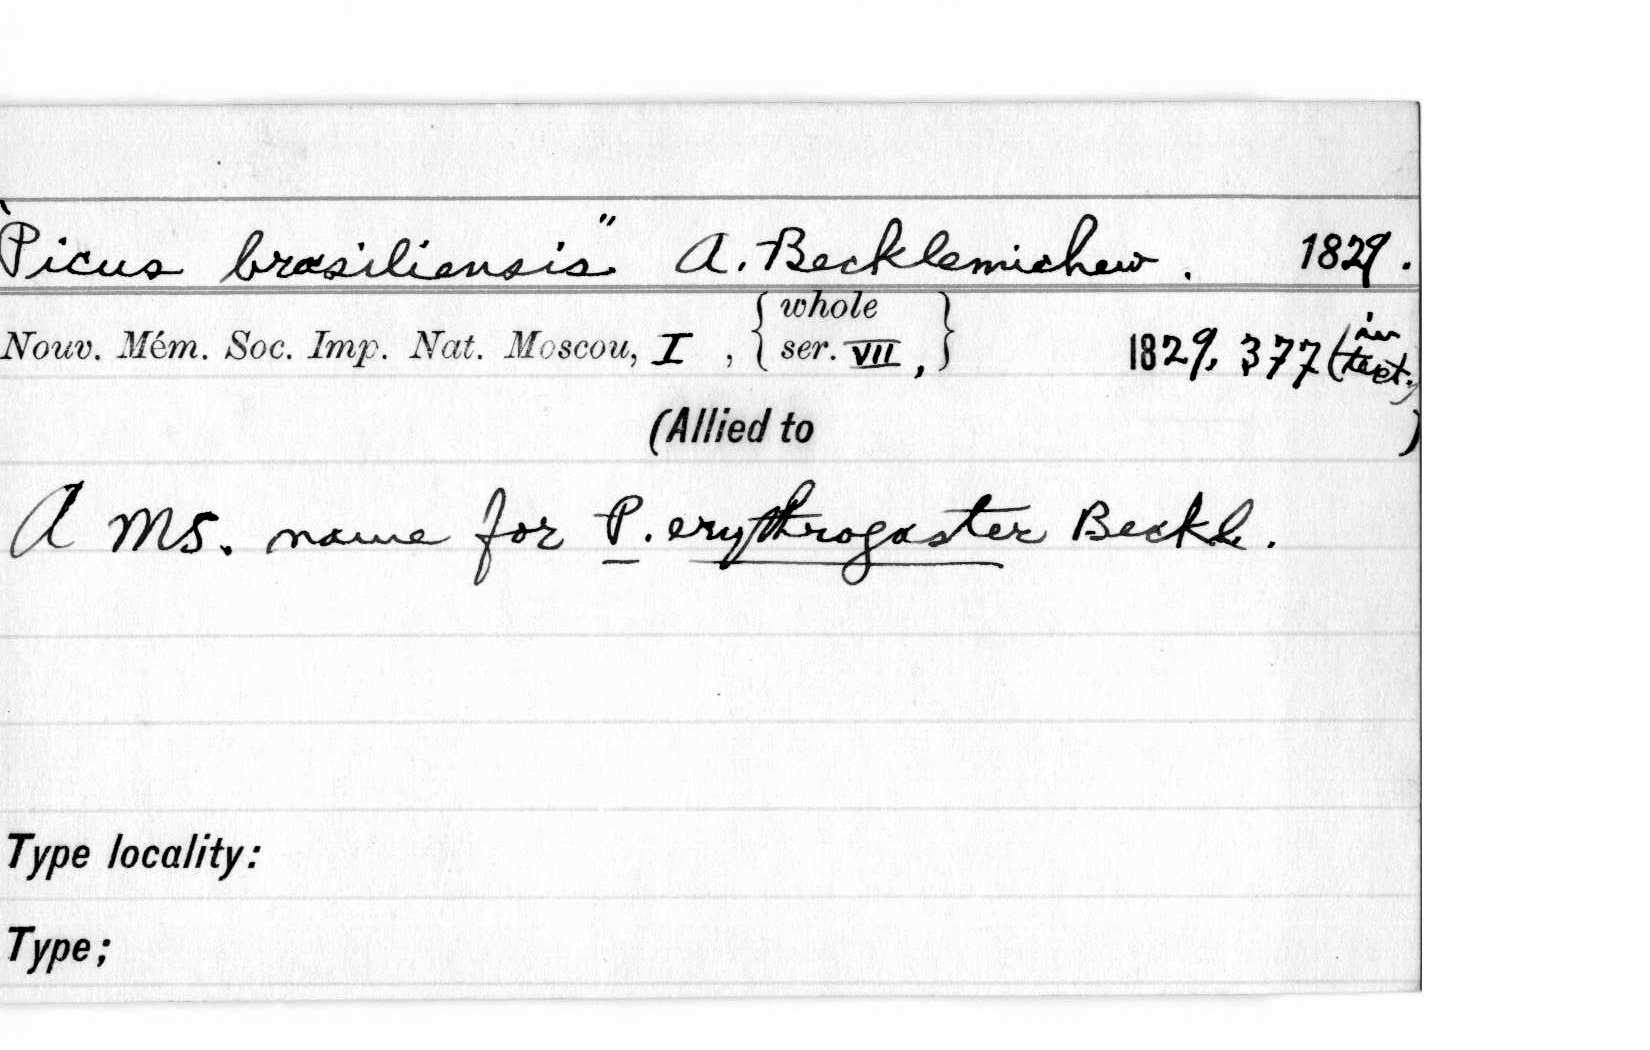 "Picus brasiliensis" A. Becklemichew. 1829.
Nouv. Mém. Soc. Imp. Nat. Moscou, I , { whole ser. VII, } 1829, 377 (in text.)
(Allied to )
A MS. name for P. erythrogaster Beckl.
Type locality:
Type;